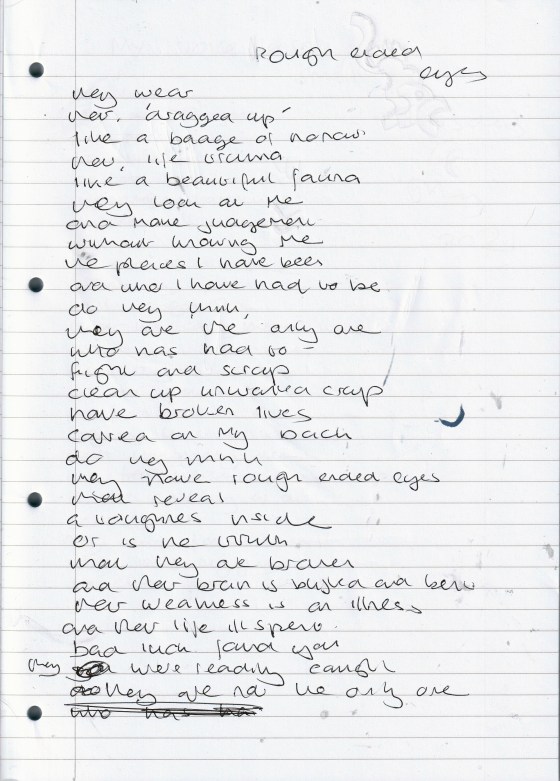 Rough ended
eyes
they wear
their 'dragged up'
like a badge of honour
their life trauma
like a beautiful fauna
they look at me
and make judgement
without knowing me
the places I have been
and who I have had to be
do they think,
they are the only one
who has had to
fight and scrap
clean up unwanted crap
have broken lives
carved on my back
do they think
they have rough ended eyes
that reveal
a toughness inside
or is the truth
that they are broken
and their brain is busted and bent
their weakness is an illness
and their life ill spent.
bad luck found you
they were readily caught
they are not the only one
who has had